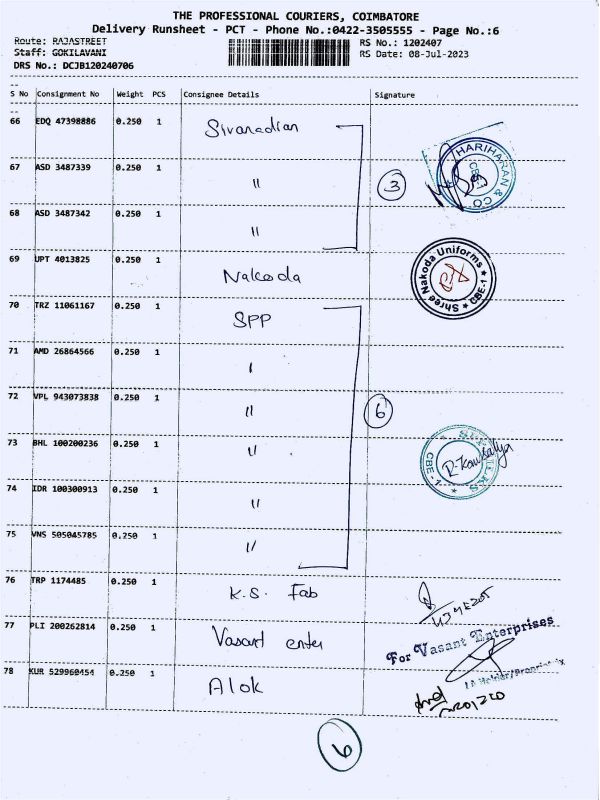 THE PROFESSIONAL COURIERS, COIMBATORE
Delivery Runsheet - PCT - Phone No.:0422-3505555 - Page No.:6
Route: RAJASTREET
RS No.: 1202407
Staff: GOKILAVANI
RS Date: 08-Jul-2023
DRS No.: DCJB120240706
S No Consignment No Weight PCS Consignee Details Signature
66 EDQ 47398886 0.250 1 Sivanadian
HARIHARAN & CO CBE-1
67 ASD 3487339 0.250 1 "
3
68 ASD 3487342 0.250 1 "
69 UPT 4013825 0.250 1 Nakoda
Shree Nakoda Uniforms ★ CBE-1 ★
70 TRZ 11061167 0.250 1 SPP
71 AMD 26864566 0.250 1 "
72 VPL 943073838 0.250 1 "
6
73 BHL 100200236 0.250 1 "
CBE-1
74 IDR 100300913 0.250 1 "
75 VNS 505045785 0.250 1 "
76 TRP 1174485 0.250 1 K.S. Fab
77 PLI 200262814 0.250 1 Vasant enter
For Vasant Enterprises
78 KUR 529960454 0.250 1 Alok
6